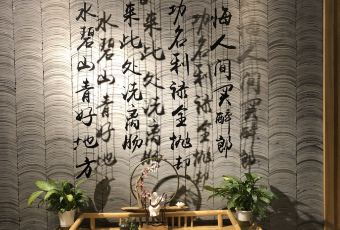 悔人间买醉郎
功名利禄全抛却
来此久洗离肠
水碧山青好地方